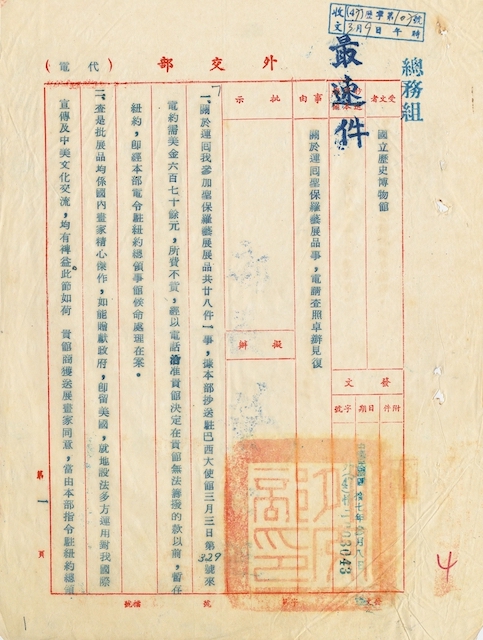 收文 (47)歷字第103號
3月9日 年 時
總務組
最速件
外交部(代電)
受文者
國立歷史博物館
事由
關於運回聖保羅藝展展品事，電請查照卓辦見復
批示
擬辦
發文
附件
日期
字號
003043
一、關於運回我參加聖保羅藝展展品共廿八件一事，據本部抄送駐巴西大使館三月三日第329號來
電約需美金六百七十餘元，所費不貲，經以電話洽准貴館決定在貴館無法籌撥的款以前，暫存
紐約，即經本部電令駐紐約總領事館候命處理在案。
二、查是批展品均係國內畫家精心傑作，如能贈獻政府，即留美國，就地設法多方運用對我國際
宣傳及中美文化交流，均有裨益。此節如荷 貴館商獲送展畫家同意，當由本部指令駐紐約總領
第一頁
號
檔號
4